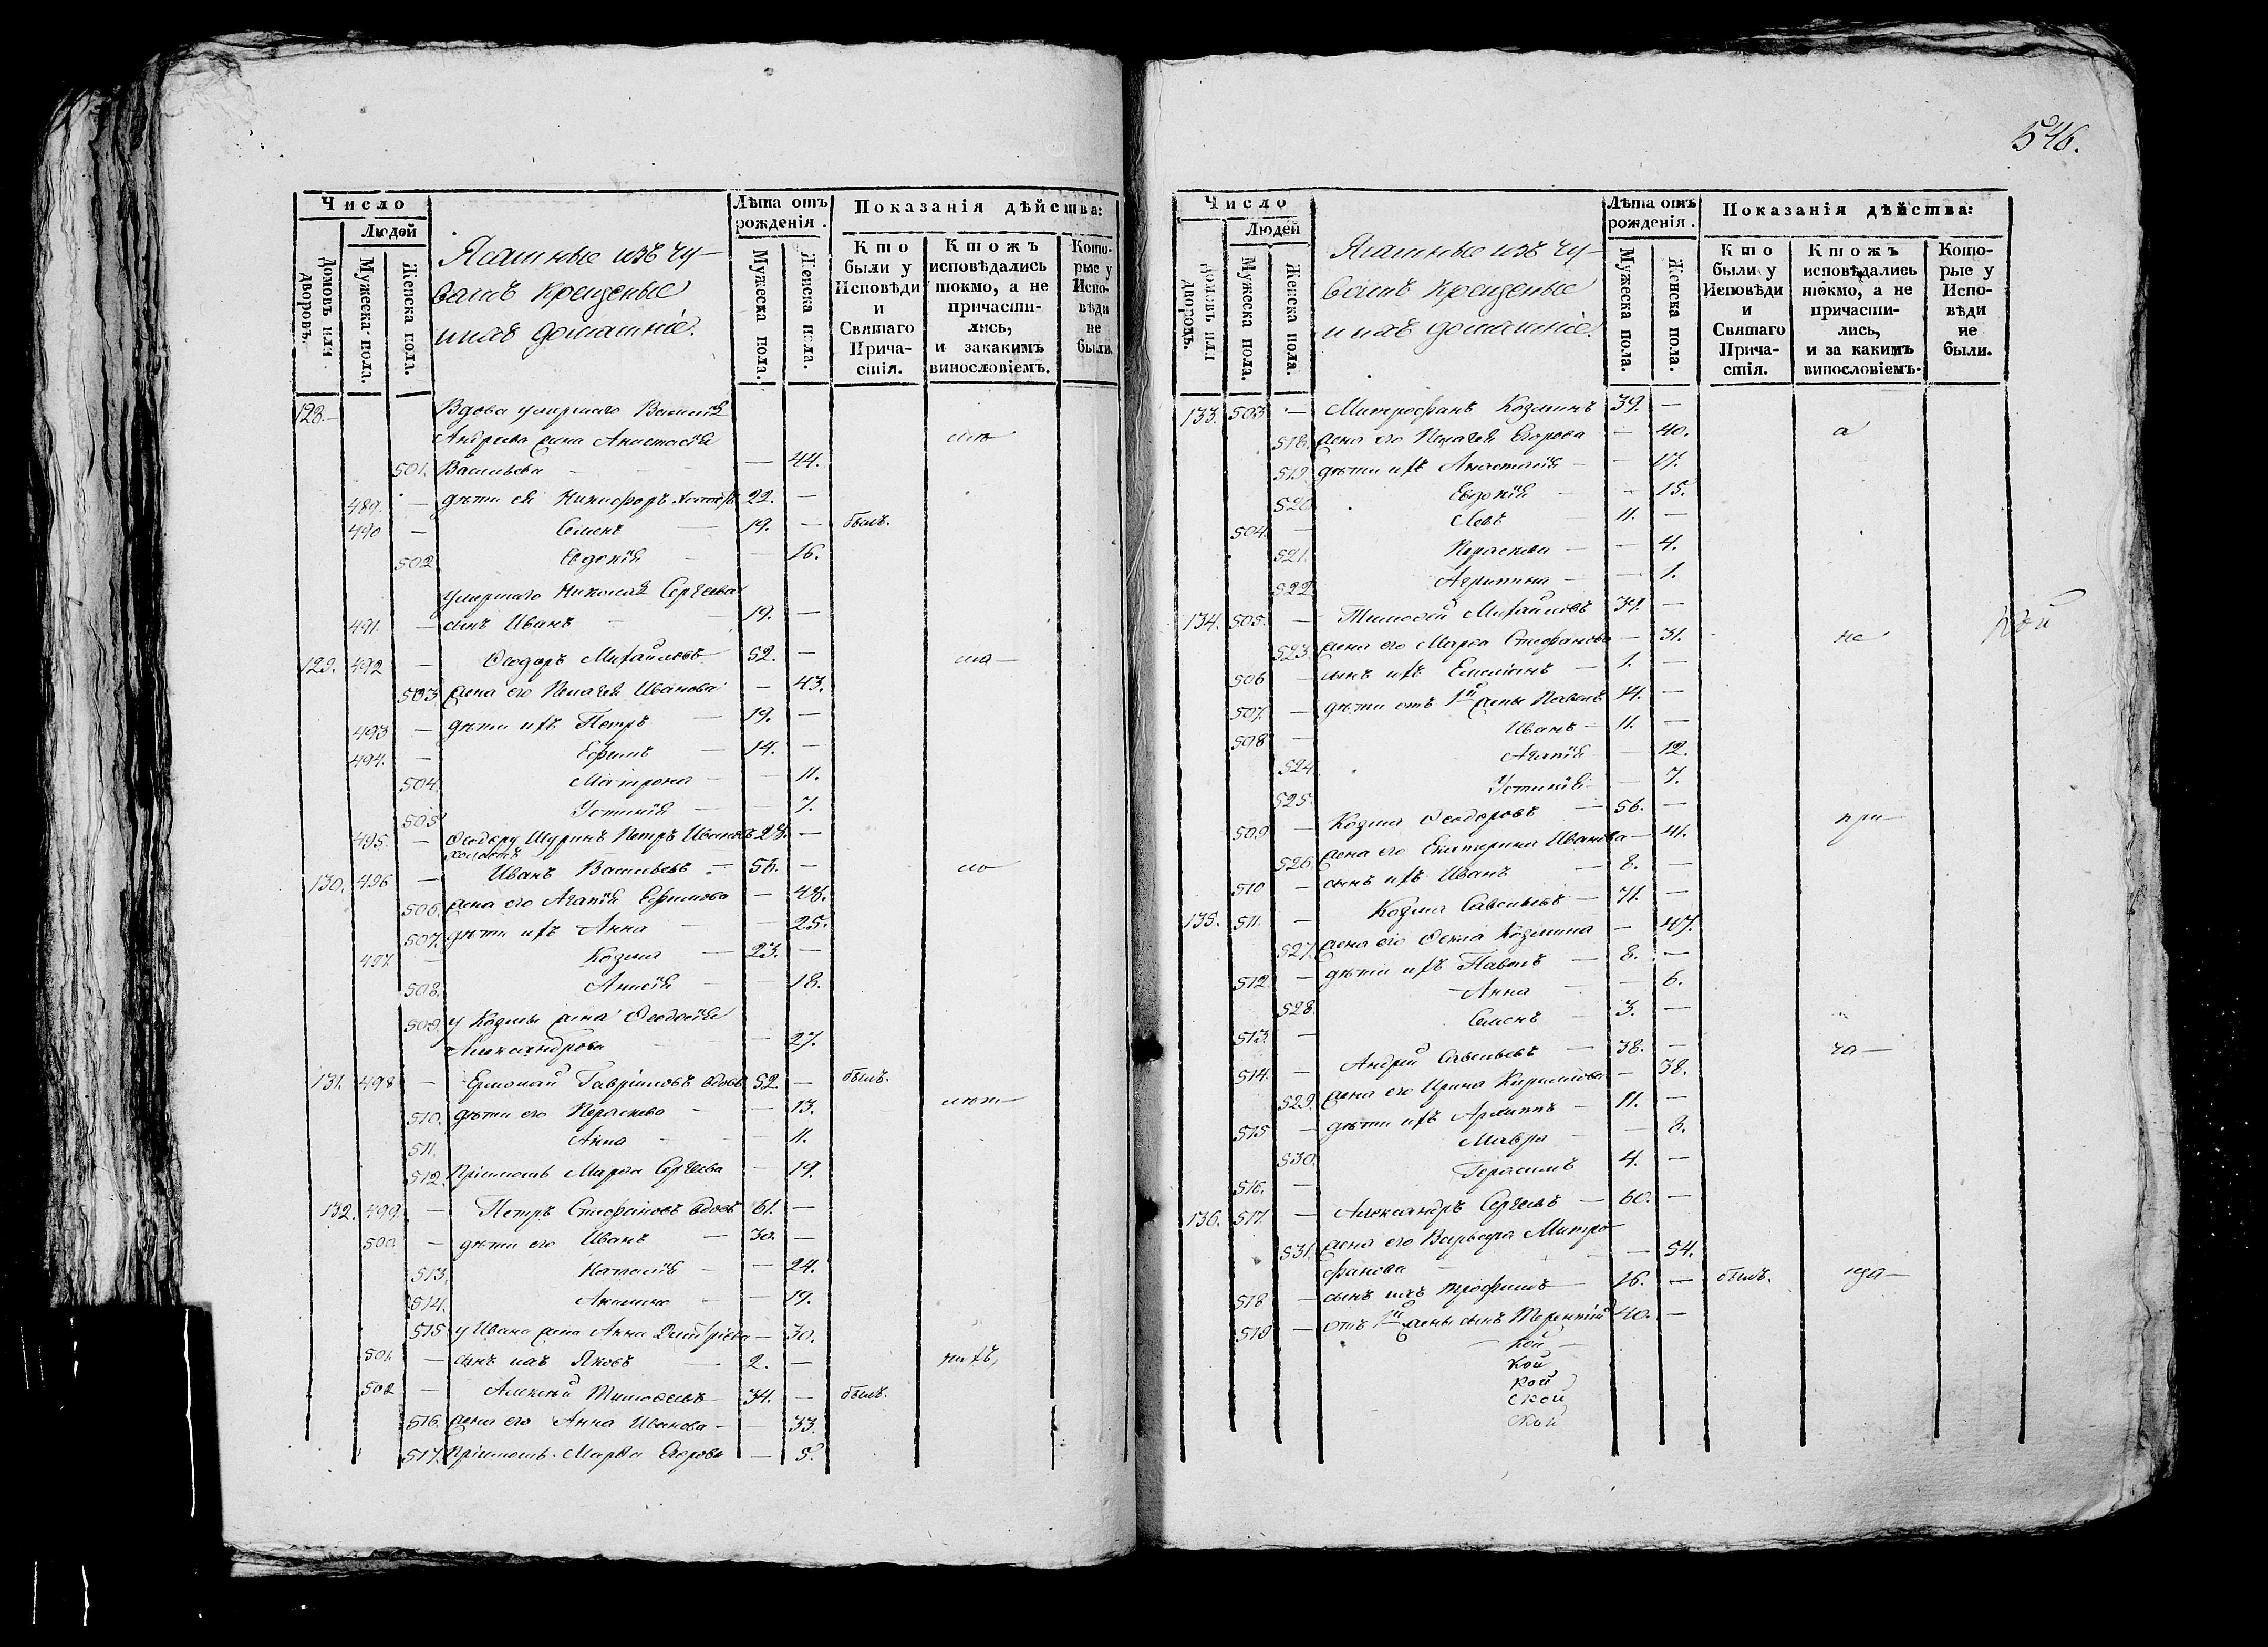 546.
Число
Людей
Домовъ или дворовъ.
Мужеска пола.
Женска пола.
Ясашные изъ чу-
вашъ крещеные
и ихъ домашніе.
Лѣта отъ рожденія.
Мужеска пола.
Женска пола.
Показанія дѣйства:
Кто были у Исповѣди и Святаго Причастія.
Ктожъ исповѣдались токмо, а не причастились, и закакимъ винословіемъ.
Которые у Исповѣди не были.
128. Вдова умершаго Василія
Андреева жена Анастасія
501. Васильева — 44.
489. — дѣти ея Никифоръ холостъ 22. —
490 — Семенъ — 19. — былъ.
502 Евдокія — 16.
умершаго Николая Сергеева
491. — сынъ Иванъ — 19. —
129. 492 — Ѳеодоръ Михайловъ 52. —
503. жена его Пелагея Иванова — 43.
493 — дѣти ихъ Петръ — 19. —
494. — Ефимъ — 14. —
504. Матрона — — 11.
505. Устинія — — 7.
495. — Ѳеодору Шуринъ Петръ Ивановъ 28. —
холостъ
130. 496 — Иванъ Васильевъ — 58. —
506. жена его Агапія Ефимова — 48.
507. дѣти ихъ Анна — — 25.
497. — Козма — 23. —
508. Анисія — — 18.
509. у Козмы жена Ѳеодосія
Александрова — 27.
131. 498 — Ермолай Гавріиловъ вдовъ 52. — былъ.
510. дѣти его Параскева — — 13.
511. Анна — — 11.
512. Пріемышъ Марѳа Сергеева — 19.
132. 499. — Петръ Стефановъ вдовъ 61. —
500. — дѣти его Иванъ — 30. —
513. Наталія — — 24.
514. Акилина — — 19.
515. у Ивана жена Анна Димитріева — 30.
501. — сынъ ихъ Яковъ — 2. —
502 — Алексей Тимоѳеевъ 34. — былъ.
516. жена его Анна Иванова — — 33.
517. Пріемышъ Марѳа Егорова — 5.
Число
Людей
Домовъ или дворовъ.
Мужеска пола.
Женска пола.
Ясашные изъ чу-
вашъ крещеные
и ихъ домашніе.
Лѣта отъ рожденія.
Мужеска пола.
Женска пола.
Показанія дѣйства:
Кто были у Исповѣди и Святаго Причастія.
Ктожъ исповѣдались токмо, а не причастились, и за какимъ винословіемъ.
Которые у Исповѣди не были.
133. 503 — Митрофанъ Козминъ 39. —
518. жена его Пелагея Егорова — 40. а
519. дѣти ихъ Анастасія — — 17.
520. Евдокія — — 15.
504. — Левъ 11. —
521. Параскева — — 4.
522 Агрипина — — 1.
134. 505. — Тимоѳей Михайловъ 39. —
523. жена его Марѳа Стефанова — 31. не
506 — сынъ ихъ Емеліанъ — 1. —
507. — дѣти отъ 1й жены Павелъ 14. —
508 — Иванъ — 11. —
524. Агапія — 12.
525. Устинія — 7.
509 — Козма Ѳеодоровъ — 56. — при—
526. жена его Екатерина Иванова — 41.
510 — сынъ ихъ Иванъ — 8. —
135. 511. — Козма Савельевъ — 71. —
527. жена его Ѳекла Козмина — 47.
512 — дѣти ихъ Павелъ — 8. —
528. Анна — — 6.
513. — Семенъ — 3. —
514. — Андрей Савельевъ — 38. — ча—
529. жена его Ирина Кирилова — 38.
515 — дѣти ихъ Архиппъ — 11. —
530. Мавра — — 8.
516. — Герасимъ 4. —
136. 517 — Александръ Сергеевъ — 60. —
531. жена его Варвара Митро-
фанова — — 54.
518 — сынъ ихъ Трофимъ — 16. — былъ.
519 — отъ 1й жены сынъ Терентій 40. —
кой
кой
кой
ской
ской